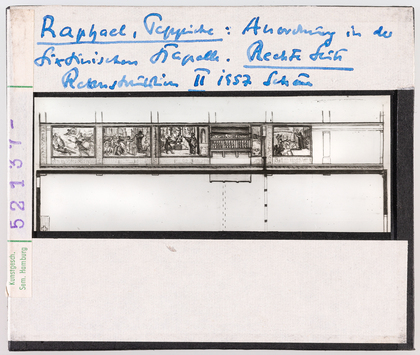 Raphael, Teppiche: Anordnung in der
Sixtinischen Kapelle. Rechte Seite
Rekonstruktion II 1957 Schöne
52137-
Kunstgesch.
Sem. Hamburg